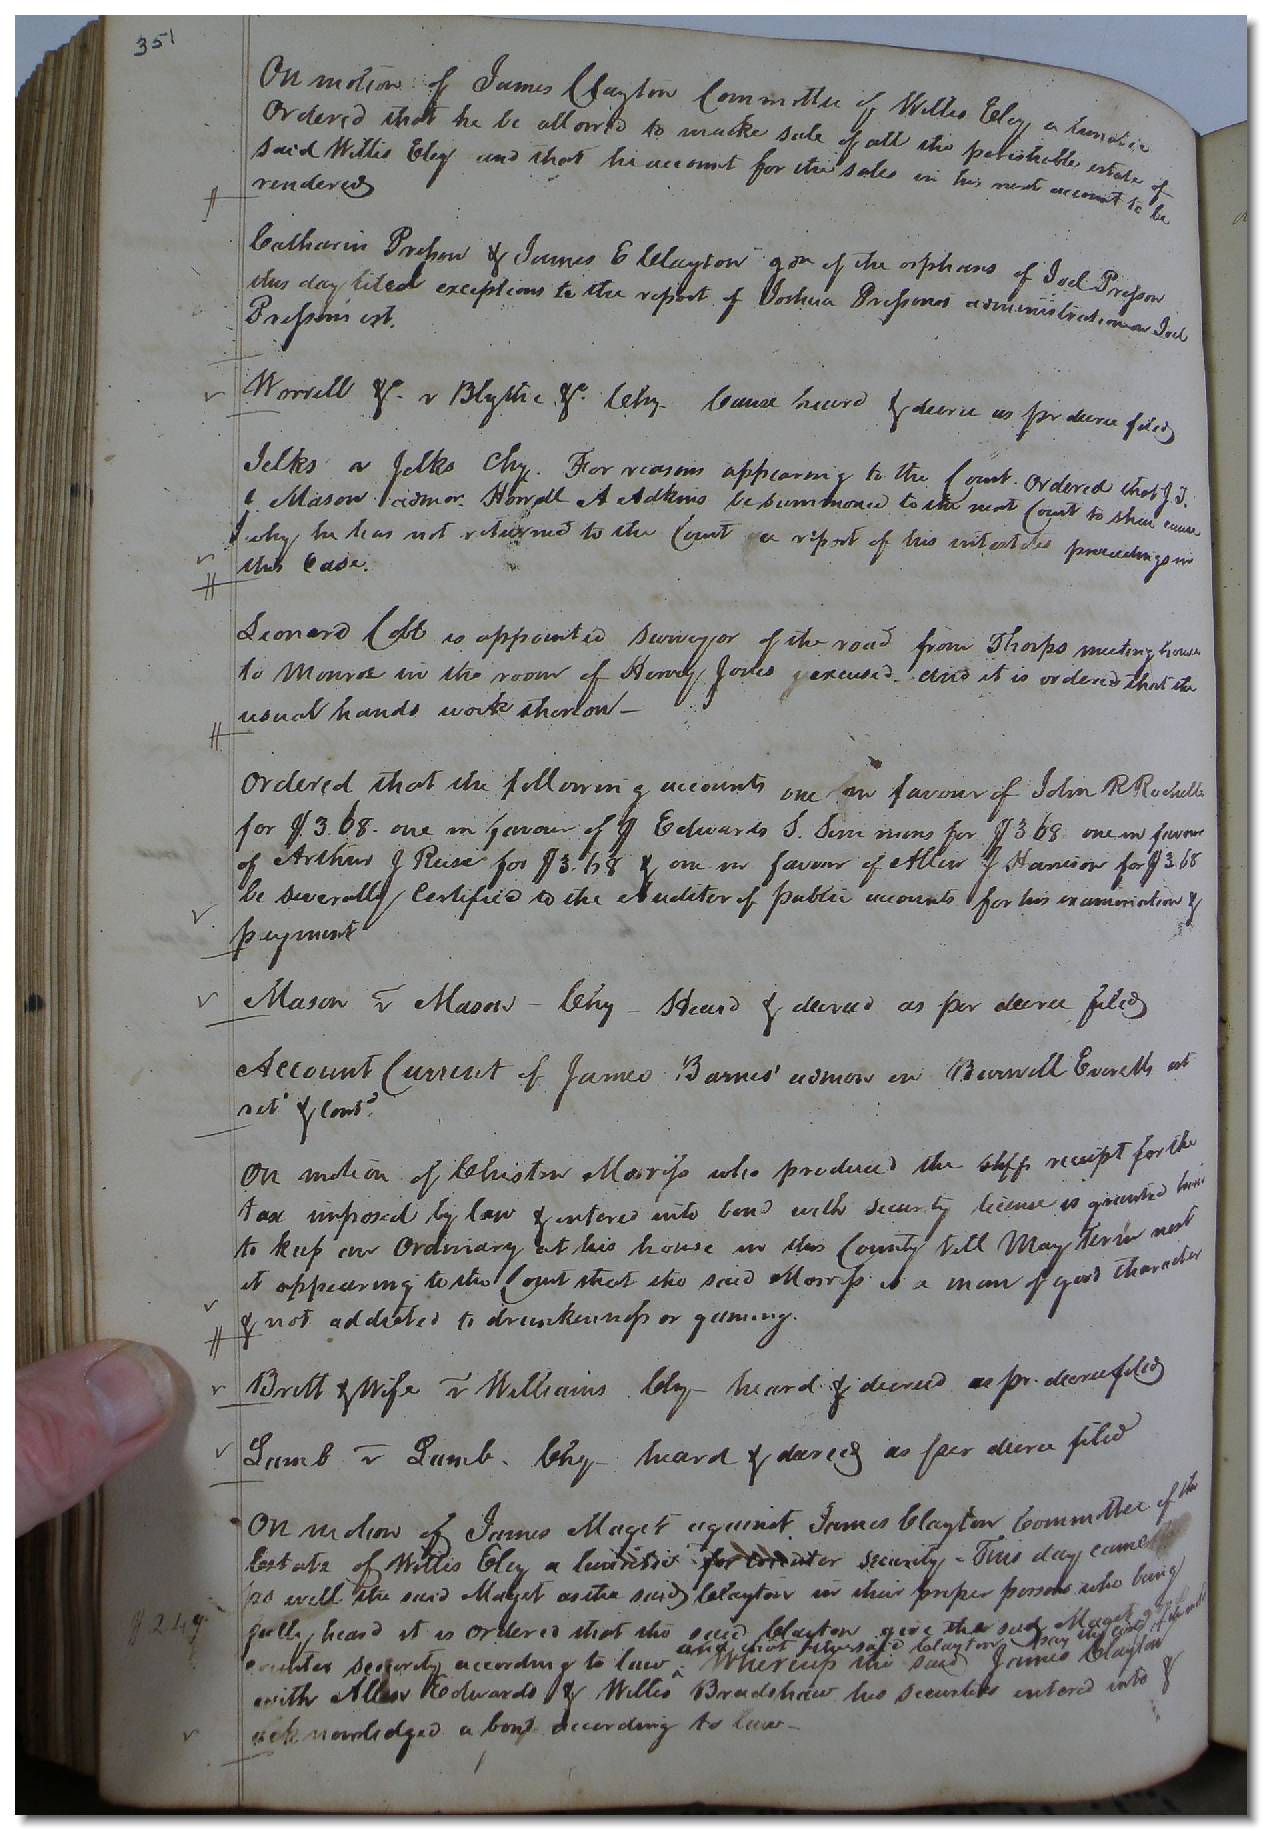 351
On motion of James Clayton Committee of Willis Eley a lunatic
Ordered that he be allowed to make sale of all the perishable estate of
said Willis Eley and that he account for the sales in his next account to be
rendered
Catharin Presson & James E Clayton gdn of the orphans of Joel Presson
this day filed exceptions to the report of Joshua Pressons administration on Joel
Pressons est.
Worrell &c. v Blythe &c. Chy Cause heard & decree as pr decree filed
Jelks v Jelks Chy. For reasons appearing to the Court. Ordered that J. J.
Mason admor. Howell A Adkins be summoned to the next Court to shew cause
why he has not returned to the Court a report of his intestates proceedings in
this Case.
Leonard Cobb is appointed surveyor of the road from Thorps meeting house
to Monroe in the room of Henry Jones excused. and it is ordered that the
usual hands work thereon —
Ordered that the following accounts one in favour of John R Rochelle
for $3.68. one in favour of Edwards S. Simmons for $3 68 one in favour
of Arthur J Reese for $3.68 & one in favour of Allen J Harrison for $3.68
be severally Certified to the Auditor of public accounts for his examination &
payment
Mason v Mason — Chy — Heard & decreed as per decree filed
Account Current of James Barnes' admon on Burwell Everetts est
ret<sup>d</sup> & Cont<sup>d</sup>.
On motion of Christn Morriss who produced the shffs receipt for the
tax imposed by law & entered into bond with security license is granted him
to keep an Ordinary at his house in this County till May Term next
it appearing to the Court that the said Morriss is a man of good character
& not addicted to drunkenness or gaming.
Britt & Wife v Williams Chy — heard & decreed as pr. decree filed
Lamb v Lamb. Chy — heard & decreed as per decree filed
On motion of James Maget against James Clayton Committee of the
Estate of Willis Eley a lunatic for counter security — This day came
as well the said Maget as the said Clayton in their proper persons who being
fully heard it is ordered that the said Clayton give the said Maget
and that the said Clayton pay the
counter security according to law. Whereup the said James Clayton
with Allen Edwards & Willis Bradshaw his securities entered into &
acknowledged a bond according to law —